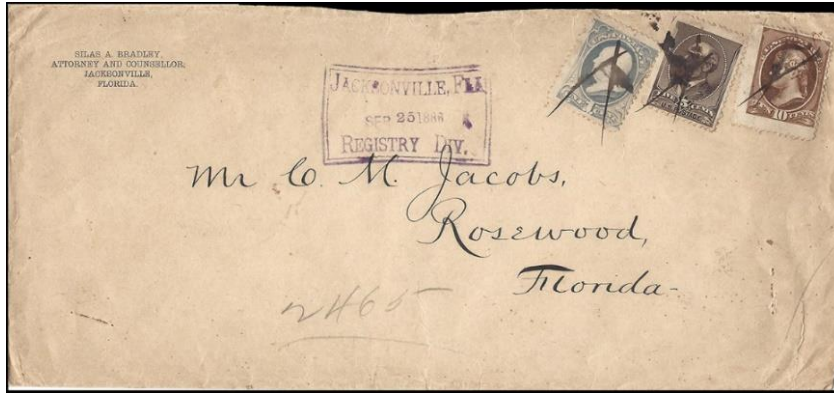 SILAS A. BRADLEY,
ATTORNEY AND COUNSELLOR,
JACKSONVILLE,
FLORIDA.
JACKSONVILLE, FLA
SEP 25 1886
REGISTRY DIV.
10
Mr C. M. Jacobs,
Rosewood,
Florida-
2465